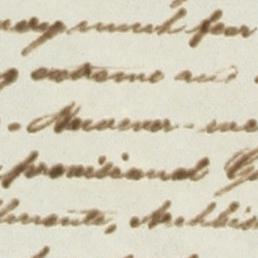 very much fear
extreme and
However - we
provisional G
lments, Archbis